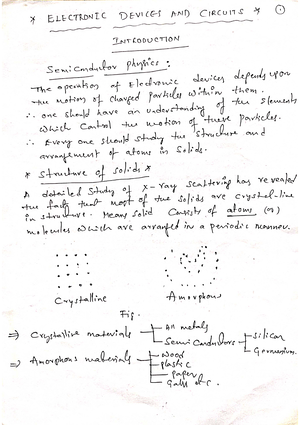 * ELECTRONIC DEVICES AND CIRCUITS * 1
INTRODUCTION
Semiconductor physics :
The operation of Electronic devices depends upon
the motion of charged particles within them.
∴ one should have an understanding of the Elements
which control the motion of these particles.
∴ Every one should study the structure and
arrangement of atoms in solids.
* Structure of solids *
A detailed study of X-ray scattering has revealed
the fact that most of the solids are crystal-line
in structure. Means solid consists of atoms (or)
molecules which are arranged in a periodic manner.
Crystalline Amorphous
Fig.
⇒ Crystalline materials All metals
Semiconductors Silicon
Germanium.
⇒ Amorphous materials Wood
plastic
paper